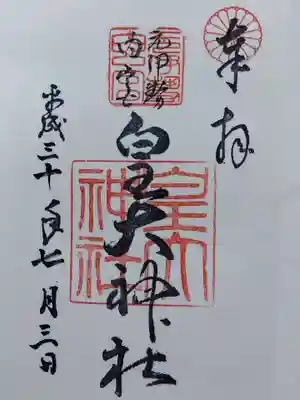 奉拝
元伊勢
内宮
皇大神社
平成三十年七月三日